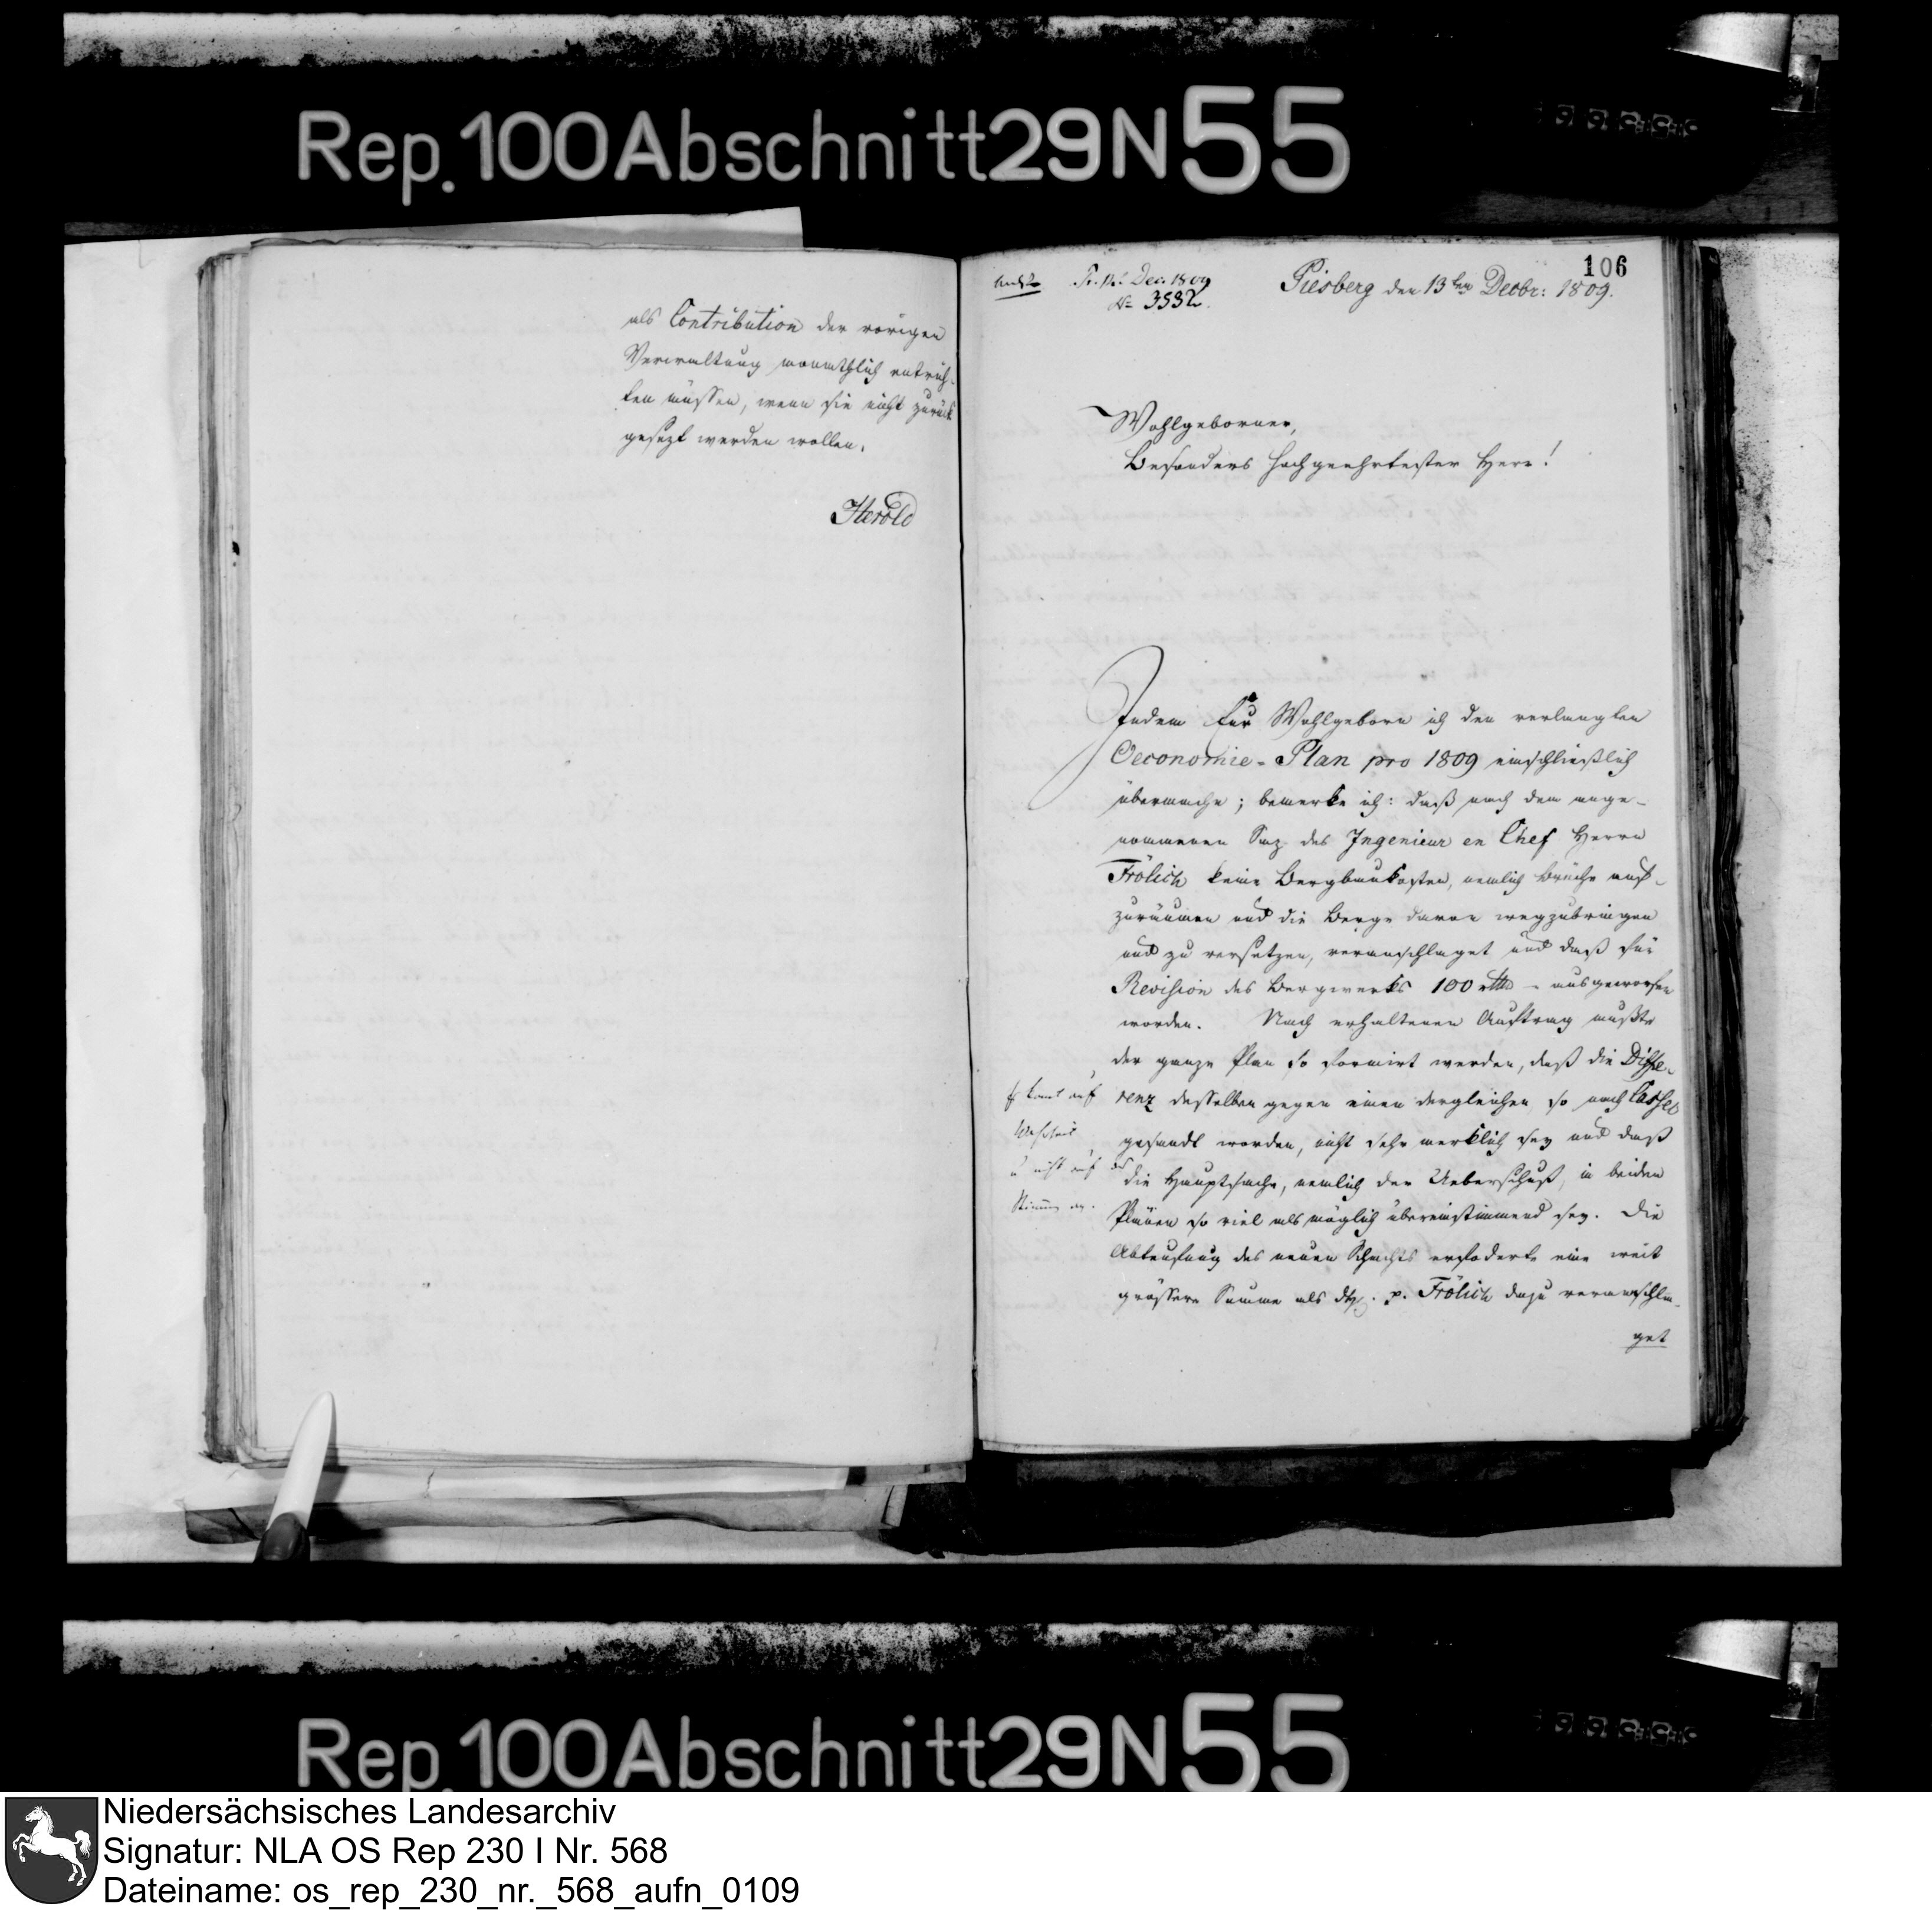 Rep.100Abschnitt29N55
als Contribution der vorigen
Verwaltung monathlich entrich-
ten müssen, wenn sie nicht zurück
gesezt werden wollen.
Herold
106
Pr. Dec. 1809
No 3532.
Piesberg den 13ten Decbr: 1809.
Wohlgeborner,
Besonders hochgeehrtester Herr!
Indem Eur Wohlgeborn ich den verlangten
Oeconomie-Plan pro 1809 einschließlich
übermache; bemerke ich: daß nach dem ange-
nommenen Saz des Ingenieur en Chef Herrn
Frölich keine Bergbaukosten, nemlich Brüche auf-
zuräumen und die Berge davon wegzubringen
und zu versetzen, veranschlaget und daß für
Revision des Bergwerks 100 rthl - ausgeworfen
worden. Nach erhaltenen Auftrag mußte
der ganze Plan so formirt werden, daß die Diffe-
renz desselben gegen einen dergleichen so nach Cassel
gesandt worden, nicht sehr merklich sey und daß
die Hauptsache, nemlich der Ueberschuß, in beiden
Plänen so viel als möglich übereinstimmend sey. Die
Abteufung des neuen Schachts erfoderte eine weit
grössere Summe als p. Frölich dazu veranschla-
get
Es komt auf
Wahrheit
u nicht auf
Rep.100Abschnitt29N55
Niedersächsisches Landesarchiv
Signatur: NLA OS Rep 230 I Nr. 568
Dateiname: os_rep_230_nr._568_aufn_0109